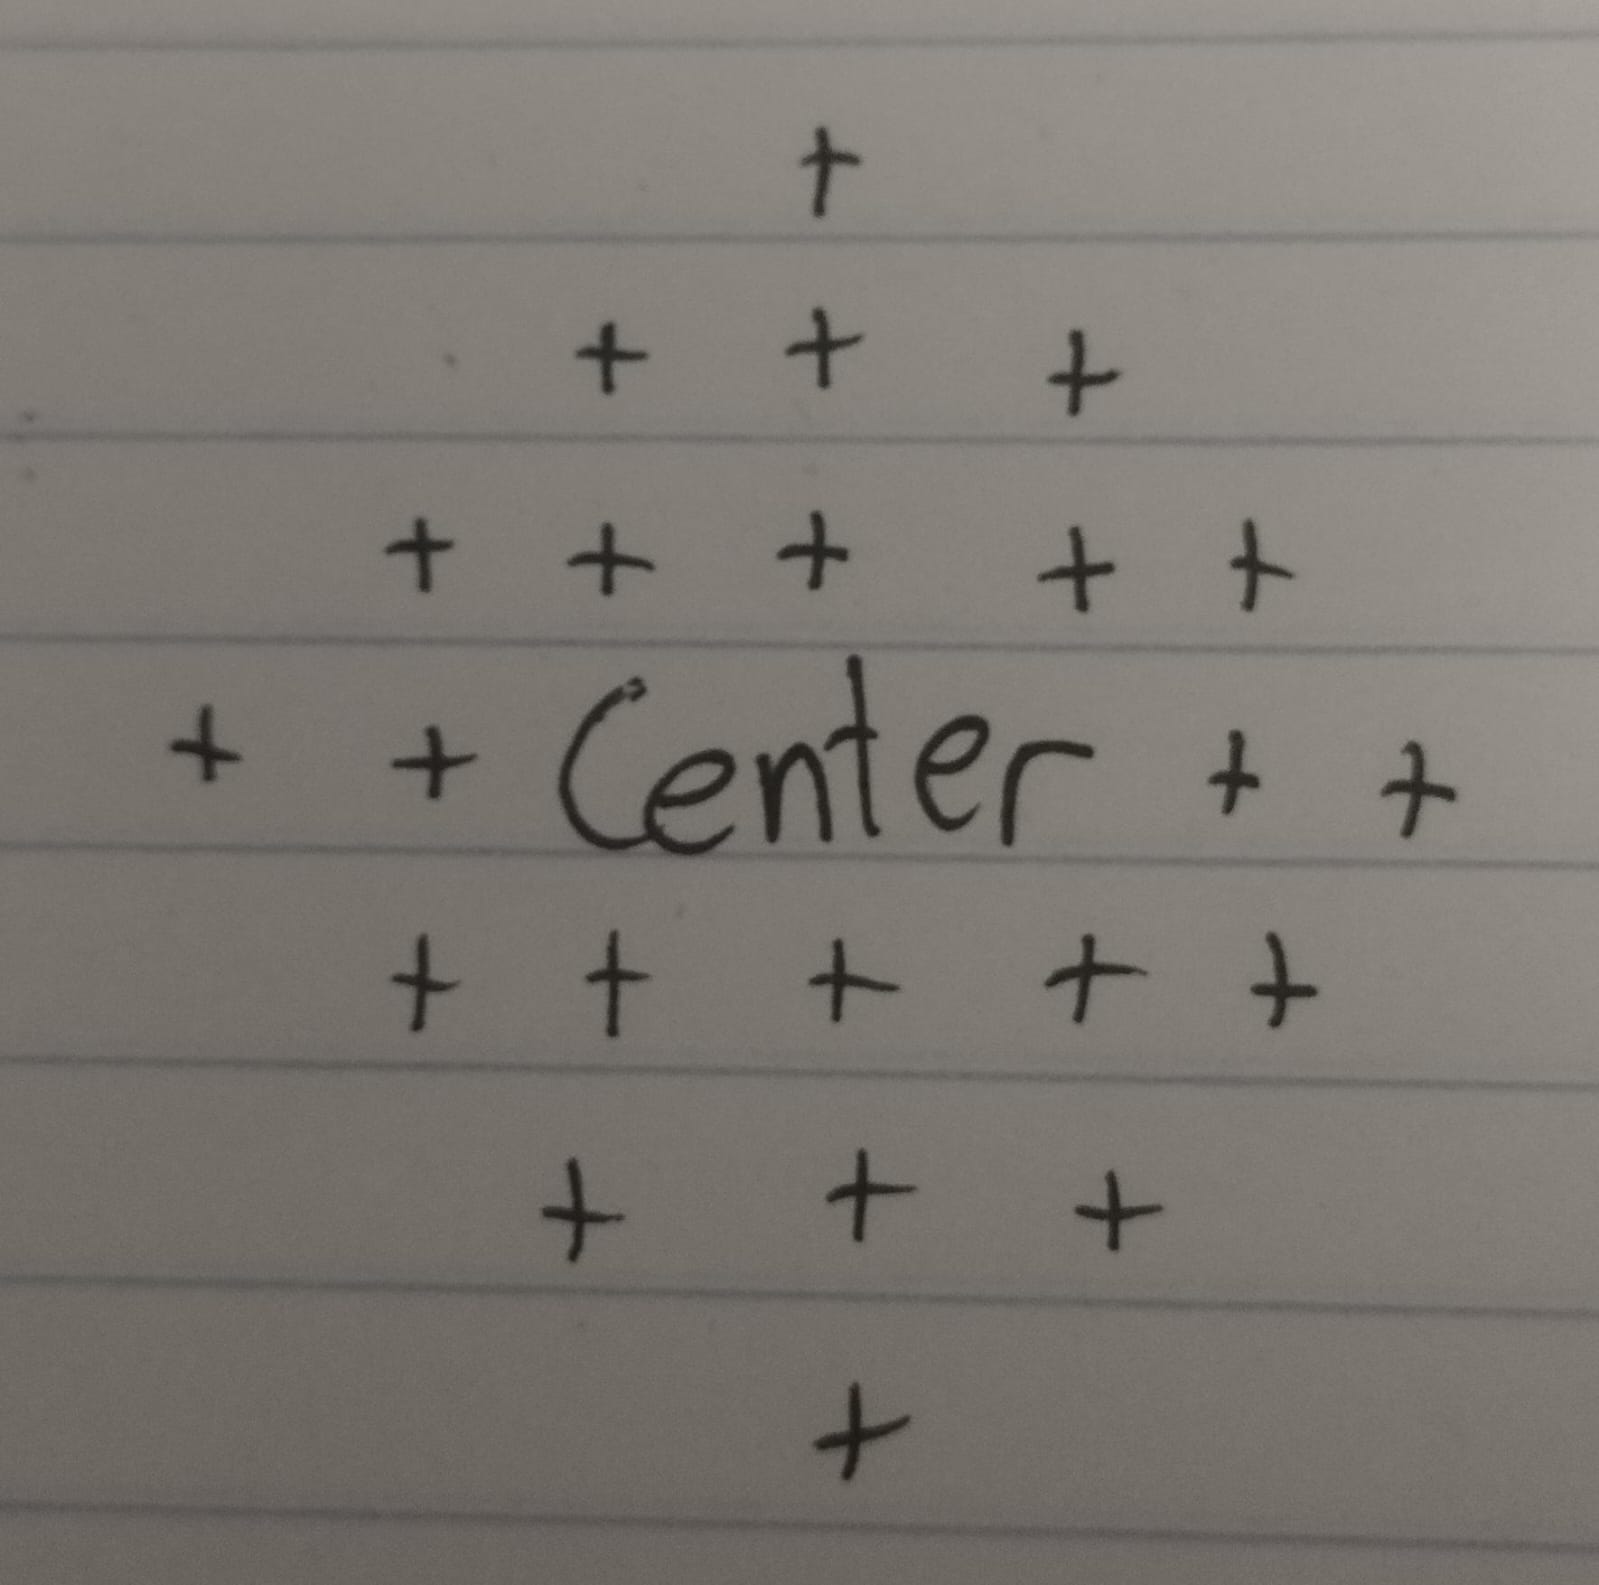 +
+ + +
+ + + + +
+ + Center + +
+ + + + +
+ + +
+